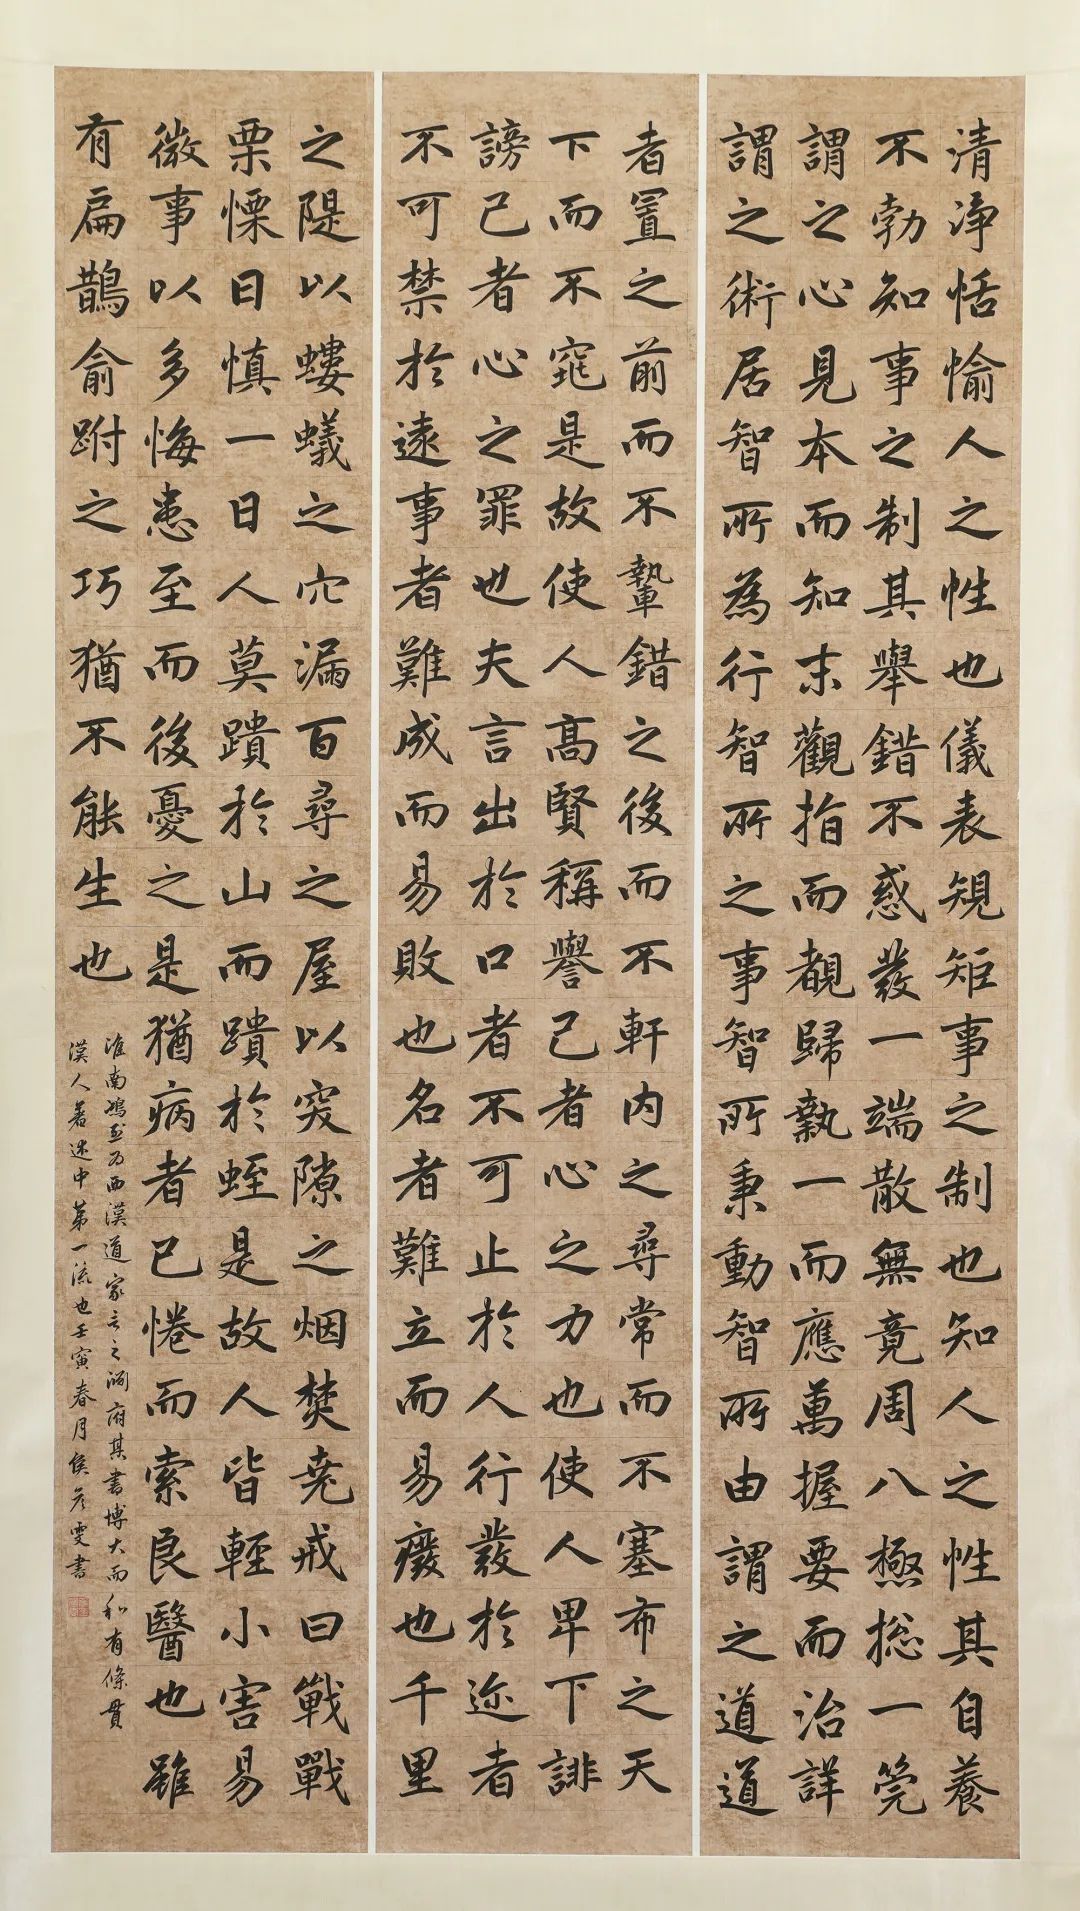 清淨恬愉人之性也儀表規矩事之制也知人之性其自養
不勃知事之制其舉錯不惑發一端散無竟周八極揔一筦
謂之心見本而知末觀指而覩歸執一而應萬握要而治詳
謂之術居智所為行智所之事智所秉動智所由謂之道道
者置之前而不蟄錯之後而不軒内之尋常而不塞布之天
下而不窕是故使人高賢稱譽己者心之力也使人卑下誹
謗己者心之罪也夫言出於口者不可止於人行發於迩者
不可禁於遠事者難成而易敗也名者難立而易癈也千里
之隄以螻蟻之穴漏百尋之屋以突隙之烟焚堯戒曰戰戰
栗慄日慎一日人莫蹪於山而蹪於蛭是故人皆輕小害易
微事以多悔患至而後憂之是猶病者已惓而索良醫也雖
有扁鵲俞跗之巧猶不能生也
淮南鴻烈為西漢道家言之淵府其書博大而和有條貫
漢人著述中第一流也壬寅春月侯彦雯書